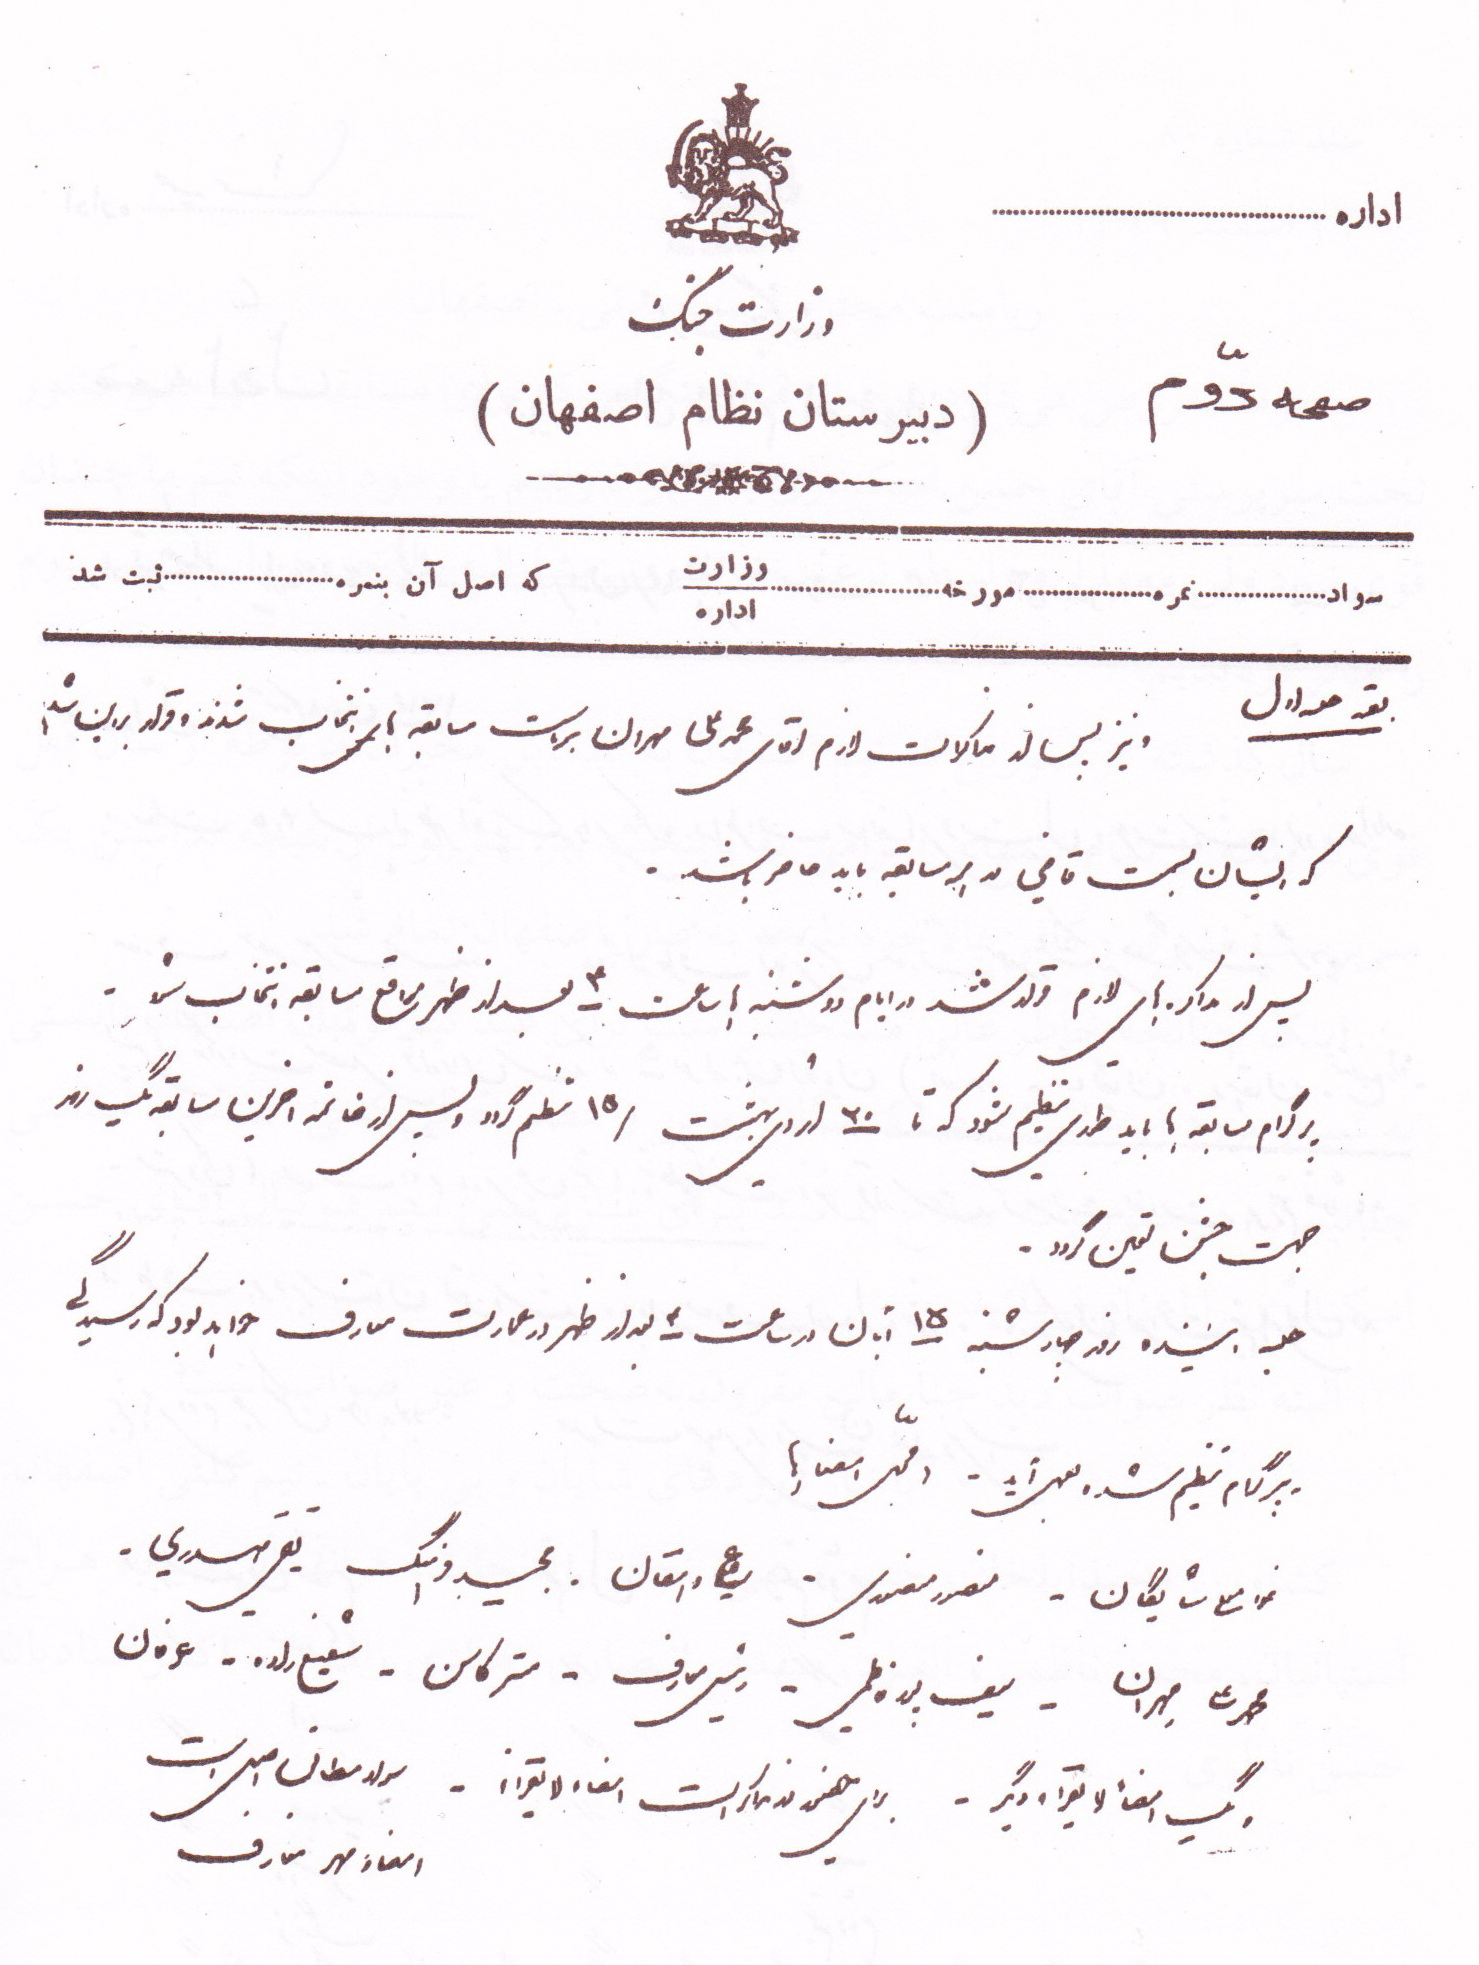 اداره
وزارت جنگ
صفحه دوّم
(دبیرستان نظام اصفهان)
سواد نمره مورخه وزارت اداره که اصل آن بنمره ثبت شد
بقیه صفحه اول
و نیز پس از مذاکرات لازم آقای محمد علی مهران بریاست مسابقه های انتخاب شدند و قرار براین شد
که ایشان بسمت قاضی در هر مسابقه باید حاضر باشند -
پس از مذاکره های لازم قرار شد در ایام دوشنبه ها ساعت ۴ بعد از ظهر مواقع مسابقه انتخاب شود -
پرگرام مسابقه ها باید طوری تنظیم شود که تا ۳۰ اردی بهشت ۱۵ منظم گردد و پس از خاتمه آخرین مسابقه یک روز
جهت جشن تعیین گردد -
جلسه آینده روز چهارشنبه ۱۵ آبان در ساعت ۴ بعد از ظهر در عمارت معارف خواهد بود که رسیدگی
پرگرام تنظیم شده بعمل آید - و محّل امضاء ها
شایگان - منصور منصوری - دهقان - مجید و فرهنگ تقی مهدوی -
محمد علی مهران - سیف پور فاطمی - رئیس معارف - مستر کاسن - شفیع زاده - عرفان
و یک امضاء لایقراء دیگر - برای امضاء لایقراء - سواد مطابق اصل است
امضاء مهر معارف